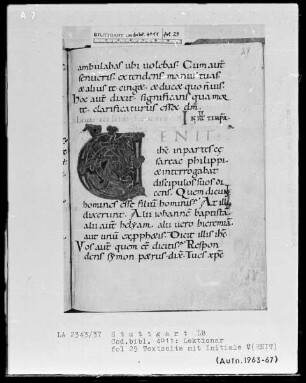 A 7
STUTTGART
fol 29
29
ambulabas ubi uolebas. Cum aut
senueris. extendens manus tuas
& alius te cinget. & ducet quo n uis.
Hoc aut dixit. significans qua morte
clarificaturus esset dm.
ENIT
ihc in partes ce
sareae philippi.
& interrogabat
discipulos suos di
cens. Quem dicunt
homines esse filium hominis? At illi
dixerunt. Alii iohannem baptista.
alii aut helyam. alii uero hieremia.
aut unum ex pphetis. Dicit illis ihc.
Vos aut quem
dicitis? Respon
dens symon petrus dix. Tu es xpc
LA 2343/37 Stuttgart LB
Cod.bibl. 4011: Lektionar
fol 29 Textseite mit Initiale V(ENIT)
(Aufn.1963-67)